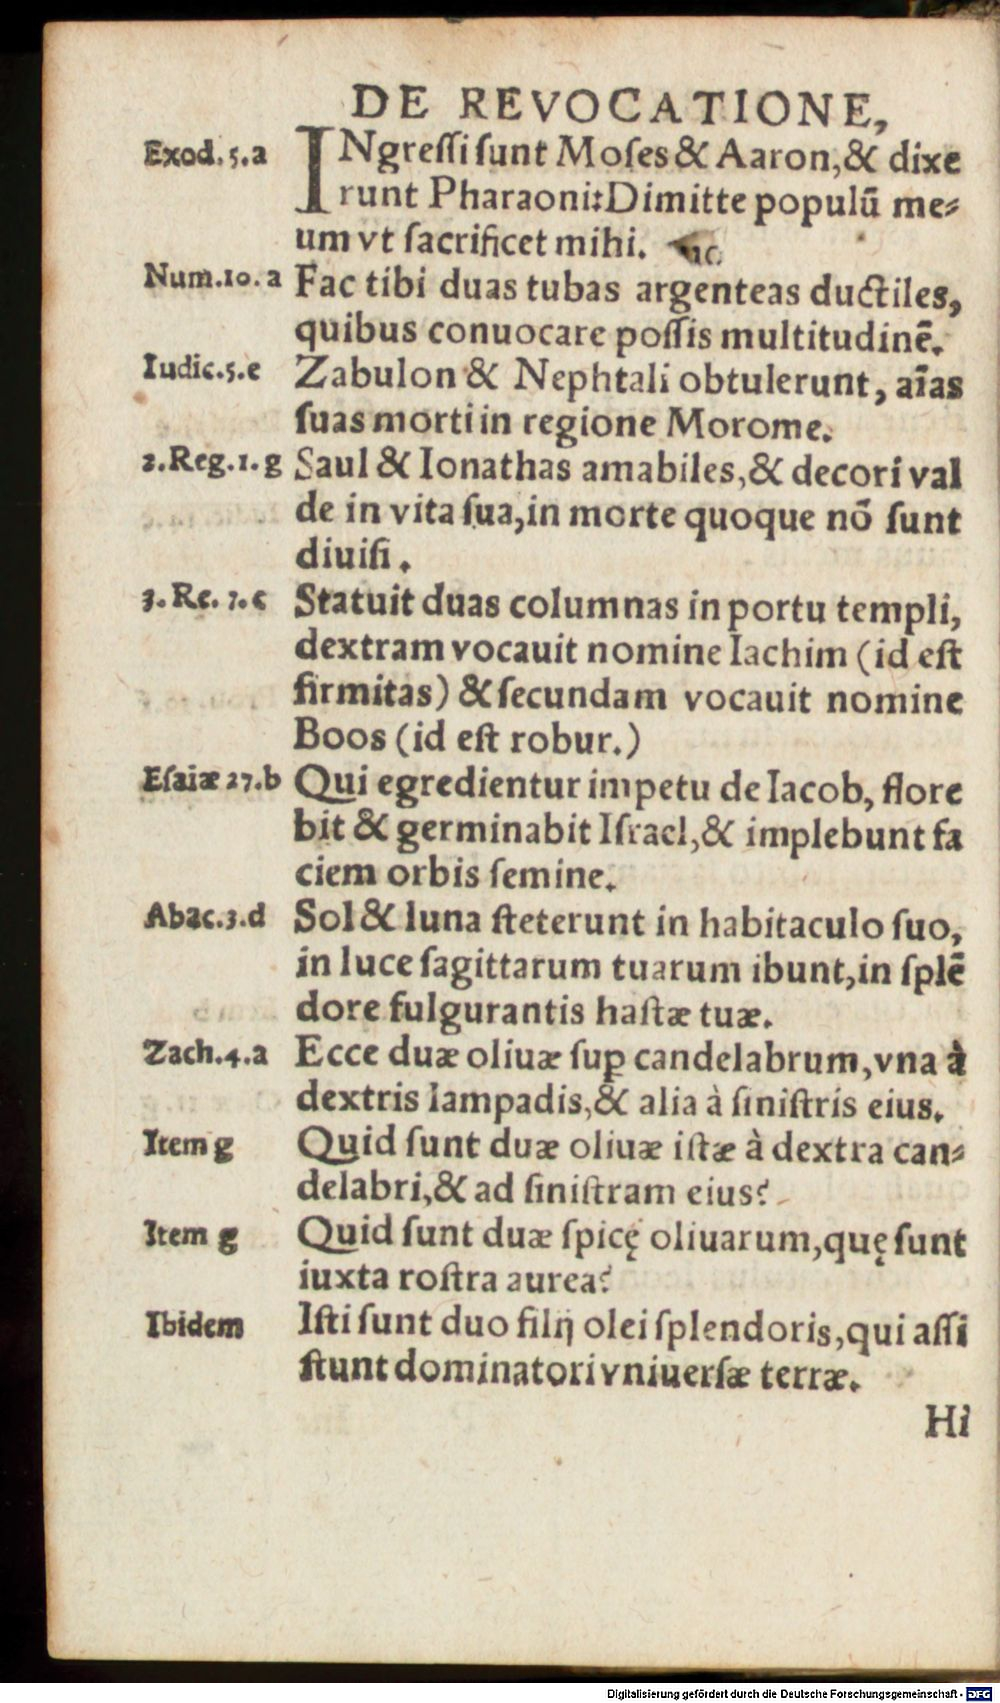 DE REVOCATIONE,
Exod.5.a INgreſſi ſunt Moſes & Aaron,& dixe
runt Pharaoni:Dimitte populũ me⸗
um vt ſacrificet mihi.
Num.10.a Fac tibi duas tubas argenteas ductiles,
quibus conuocare poſſis multitudinẽ.
Iudic.5.e Zabulon & Nephtali obtulerunt, aĩas
ſuas morti in regione Morome.
2.Reg.1.g Saul & Ionathas amabiles,& decori val
de in vita ſua,in morte quoque nõ ſunt
diuiſi.
3.Re.7.c Statuit duas columnas in portu templi,
dextram vocauit nomine Iachim (id eſt
firmitas) & ſecundam vocauit nomine
Boos (id eſt robur.)
Eſaiæ 27.b Qui egredientur impetu de Iacob, flore
bit & germinabit Iſrael,& implebunt fa
ciem orbis ſemine.
Abac.3.d Sol & luna ſteterunt in habitaculo ſuo,
in luce ſagittarum tuarum ibunt,in ſplẽ
dore fulgurantis haſtæ tuæ.
Zach.4.a Ecce duæ oliuæ ſuꝑ candelabrum,vna à
dextris lampadis,& alia à ſiniſtris eius.
Item g Quid ſunt duæ oliuæ iſtæ à dextra can⸗
delabri,& ad ſiniſtram eius?
Item g Quid ſunt duæ ſpicę oliuarum,quę ſunt
iuxta roſtra aurea?
Ibidem Iſti ſunt duo filij olei ſplendoris,qui aſſi
ſtunt dominatori vniuerſæ terræ.
Hi
Digitalisierung gefördert durch die Deutsche Forschungsgemeinschaft - DFG